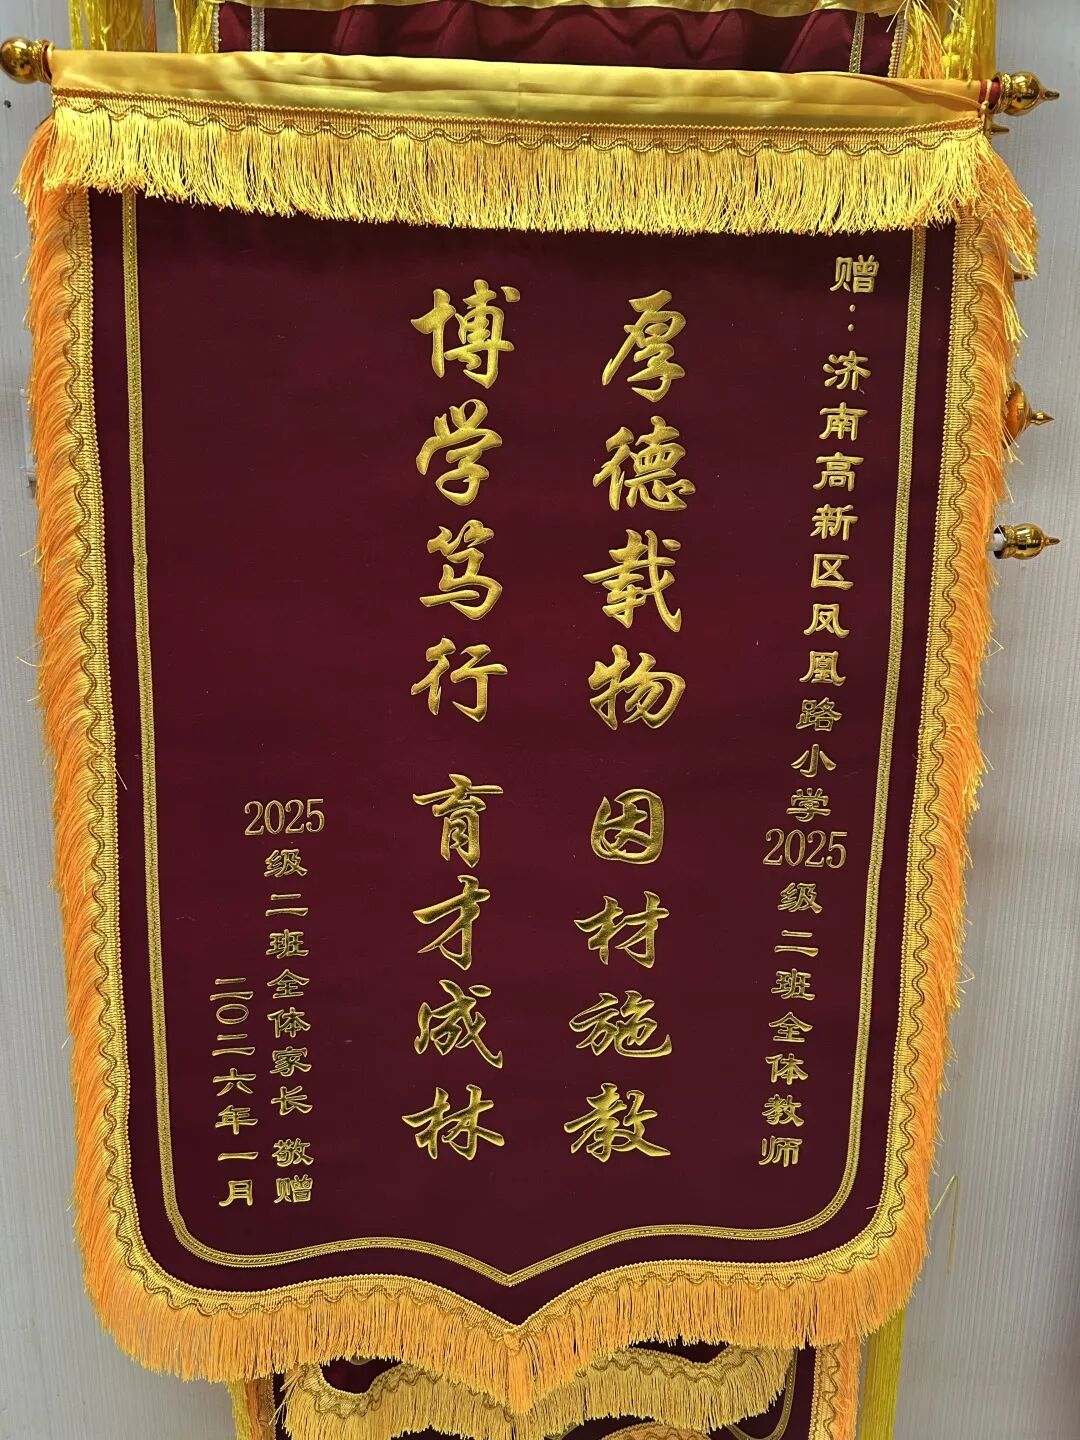 赠：济南高新区凤凰路小学2025级二班全体教师
厚德载物 因材施教
博学笃行 育才成林
2025级二班全体家长 敬赠
二〇二六年一月